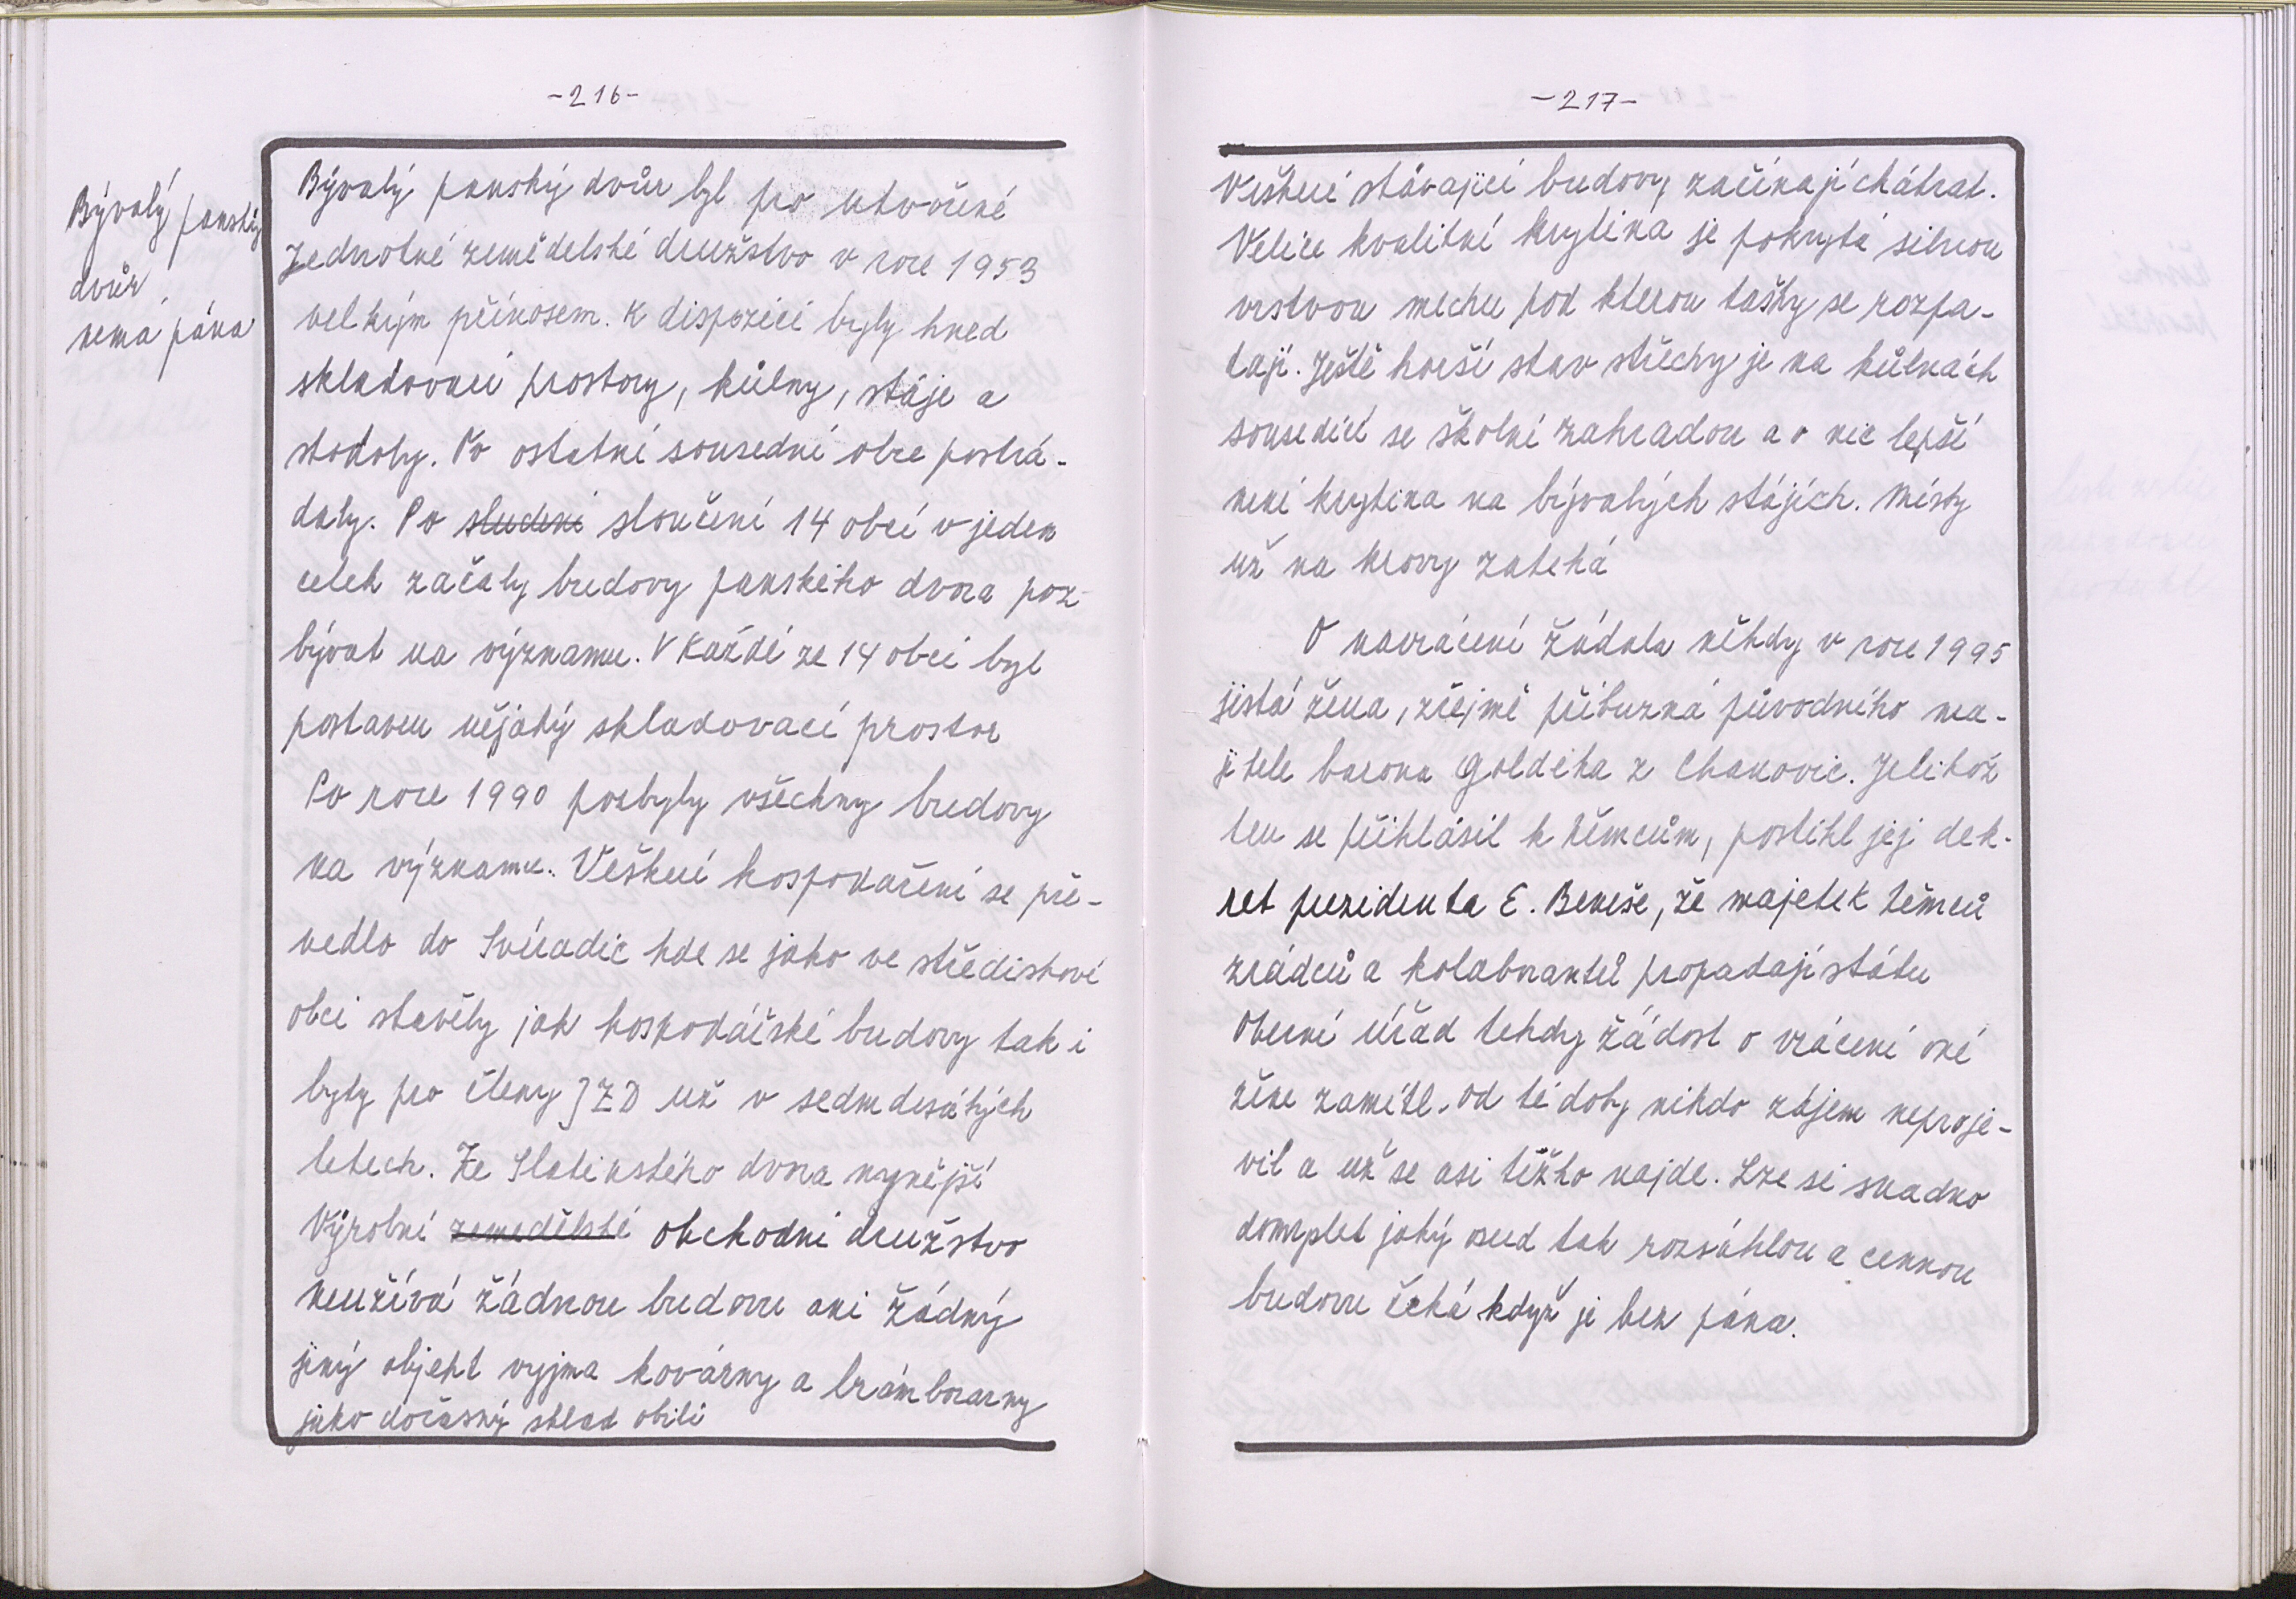 -216-
Bývalý panský
dvůr
nemá pána
Bývalý panský dvůr byl pro utvořené
Jednotné zemědelské družstvo v roce 1953
velkým přínosem. K dispozici byly hned
skladovací prostory, kůlny, stáje a
stodoly. To ostatní sousední obce postrá-
daly. Po sloučení 14 obcí v jeden
celek začaly budovy panského dvora poz-
bývat na významu. V každé ze 14 obcí byl
postaven nějaký skladovací prostor
Po roce 1990 pozbyly všechny budovy
na významu. Veškeré hospodaření se pře-
vedlo do Svéradic kde se jako ve střediskové
obci stavěly jak hospodářské budovy tak i
byty pro členy JZD už v sedmdesátých
letech. Ze Slatinského dvora nynější
Výrobní zemedělské obchodní družstvo
neužívá žádnou budovu ani žádný
jiný objekt vyjma kovárny a bramborarny
jako dočasný sklad obilí
-217-
Veškeré stávající budovy začínají chátrat.
Velice kvalitní krytina je pokrytá silnou
vrstvou mechu pod kterou tašky se rozpa-
dají. Ještě horší stav střechy je na kůlnách
sousedící se školní zahradou a o nic lepší
není krytina na bývalých stájích. Místy
už na krovy zatéká
O navrácení žádala někdy v roce 1995
jistá žena, zřejmě příbuzná původního ma-
jitele barona Goldeka z Chanovic. Jelikož
ten se přihlásil k Němcům, postihl jej dek-
ret prezidenta E. Beneše, že majetek Němců
zrádců a kolaborantů propadají státu
Obecní úřad tehdy žádost o vrácení oné
ženě zamítl. Od té doby nikdo zájem neproje-
vil a už se asi těžko najde. Lze si snadno
domyslet jaký osud tak rozsáhlou a cennou
budovu čeká když je bez pána.